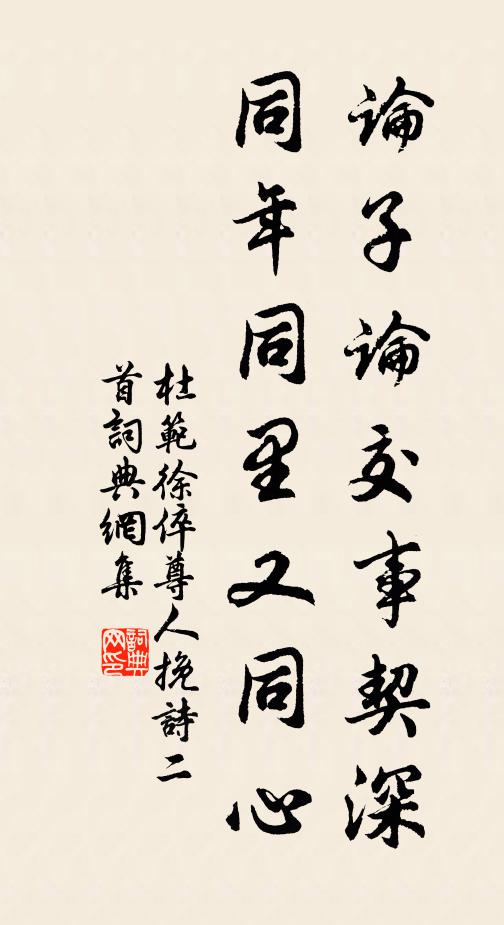 論子論交事契深
同年同里又同心
杜範徐倅尊人挽詩二
首詞典網集
詞典网印